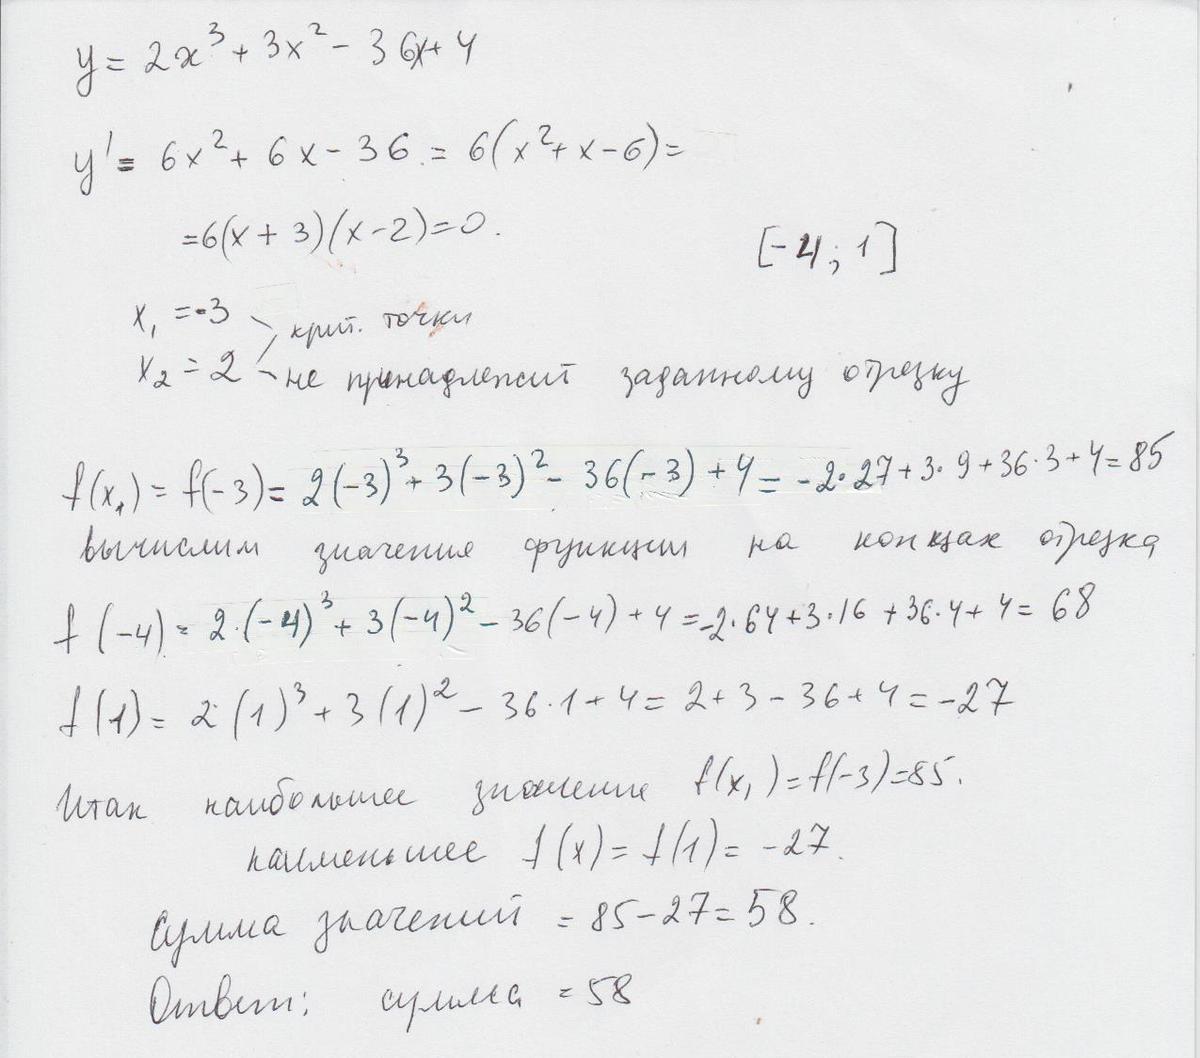 y = 2x³ + 3x² - 36x + 4
y' = 6x² + 6x - 36 = 6(x² + x - 6) =
= 6(x + 3)(x - 2) = 0.
[-4; 1]
x₁ = -3
крит. точки
x₂ = 2 не принадлежит заданному отрезку
f(x₁) = f(-3) = 2(-3)³ + 3(-3)² - 36(-3) + 4 = -2·27 + 3·9 + 36·3 + 4 = 85
вычислим значения функции на концах отрезка
f(-4) = 2·(-4)³ + 3(-4)² - 36(-4) + 4 = -2·64 + 3·16 + 36·4 + 4 = 68
f(1) = 2·(1)³ + 3(1)² - 36·1 + 4 = 2 + 3 - 36 + 4 = -27
Итак наибольшее значение f(x₁) = f(-3) = 85.
наименьшее f(x) = f(1) = -27.
Сумма значений = 85 - 27 = 58.
Ответ: сумма = 58